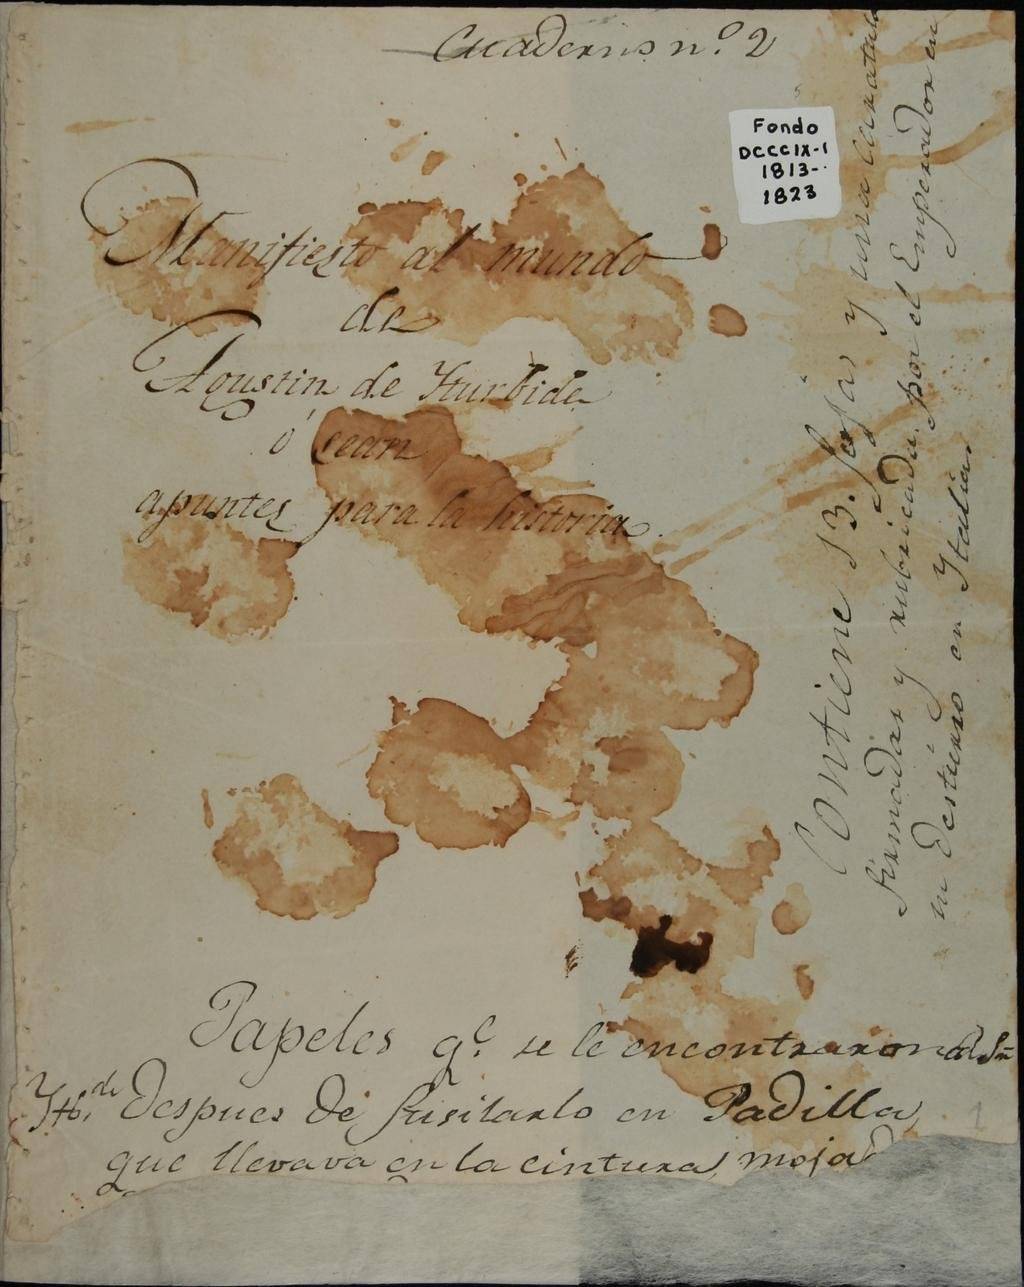 Cuaderno n.º 2
Fondo
DCCCIX-1
1813-
1823
Manifiesto al mundo
de
Agustin de Yturbide
ó sean
apuntes para la historia.
Contiene 13. fojas y una caratula
firmadas y rubricadas por el Emperador en
su destierro en Ytalia.
Papeles q.e se le encontraron al Sr
Ytb.de despues de fusilarlo en Padilla,
que llevava en la cintura, mojad
1